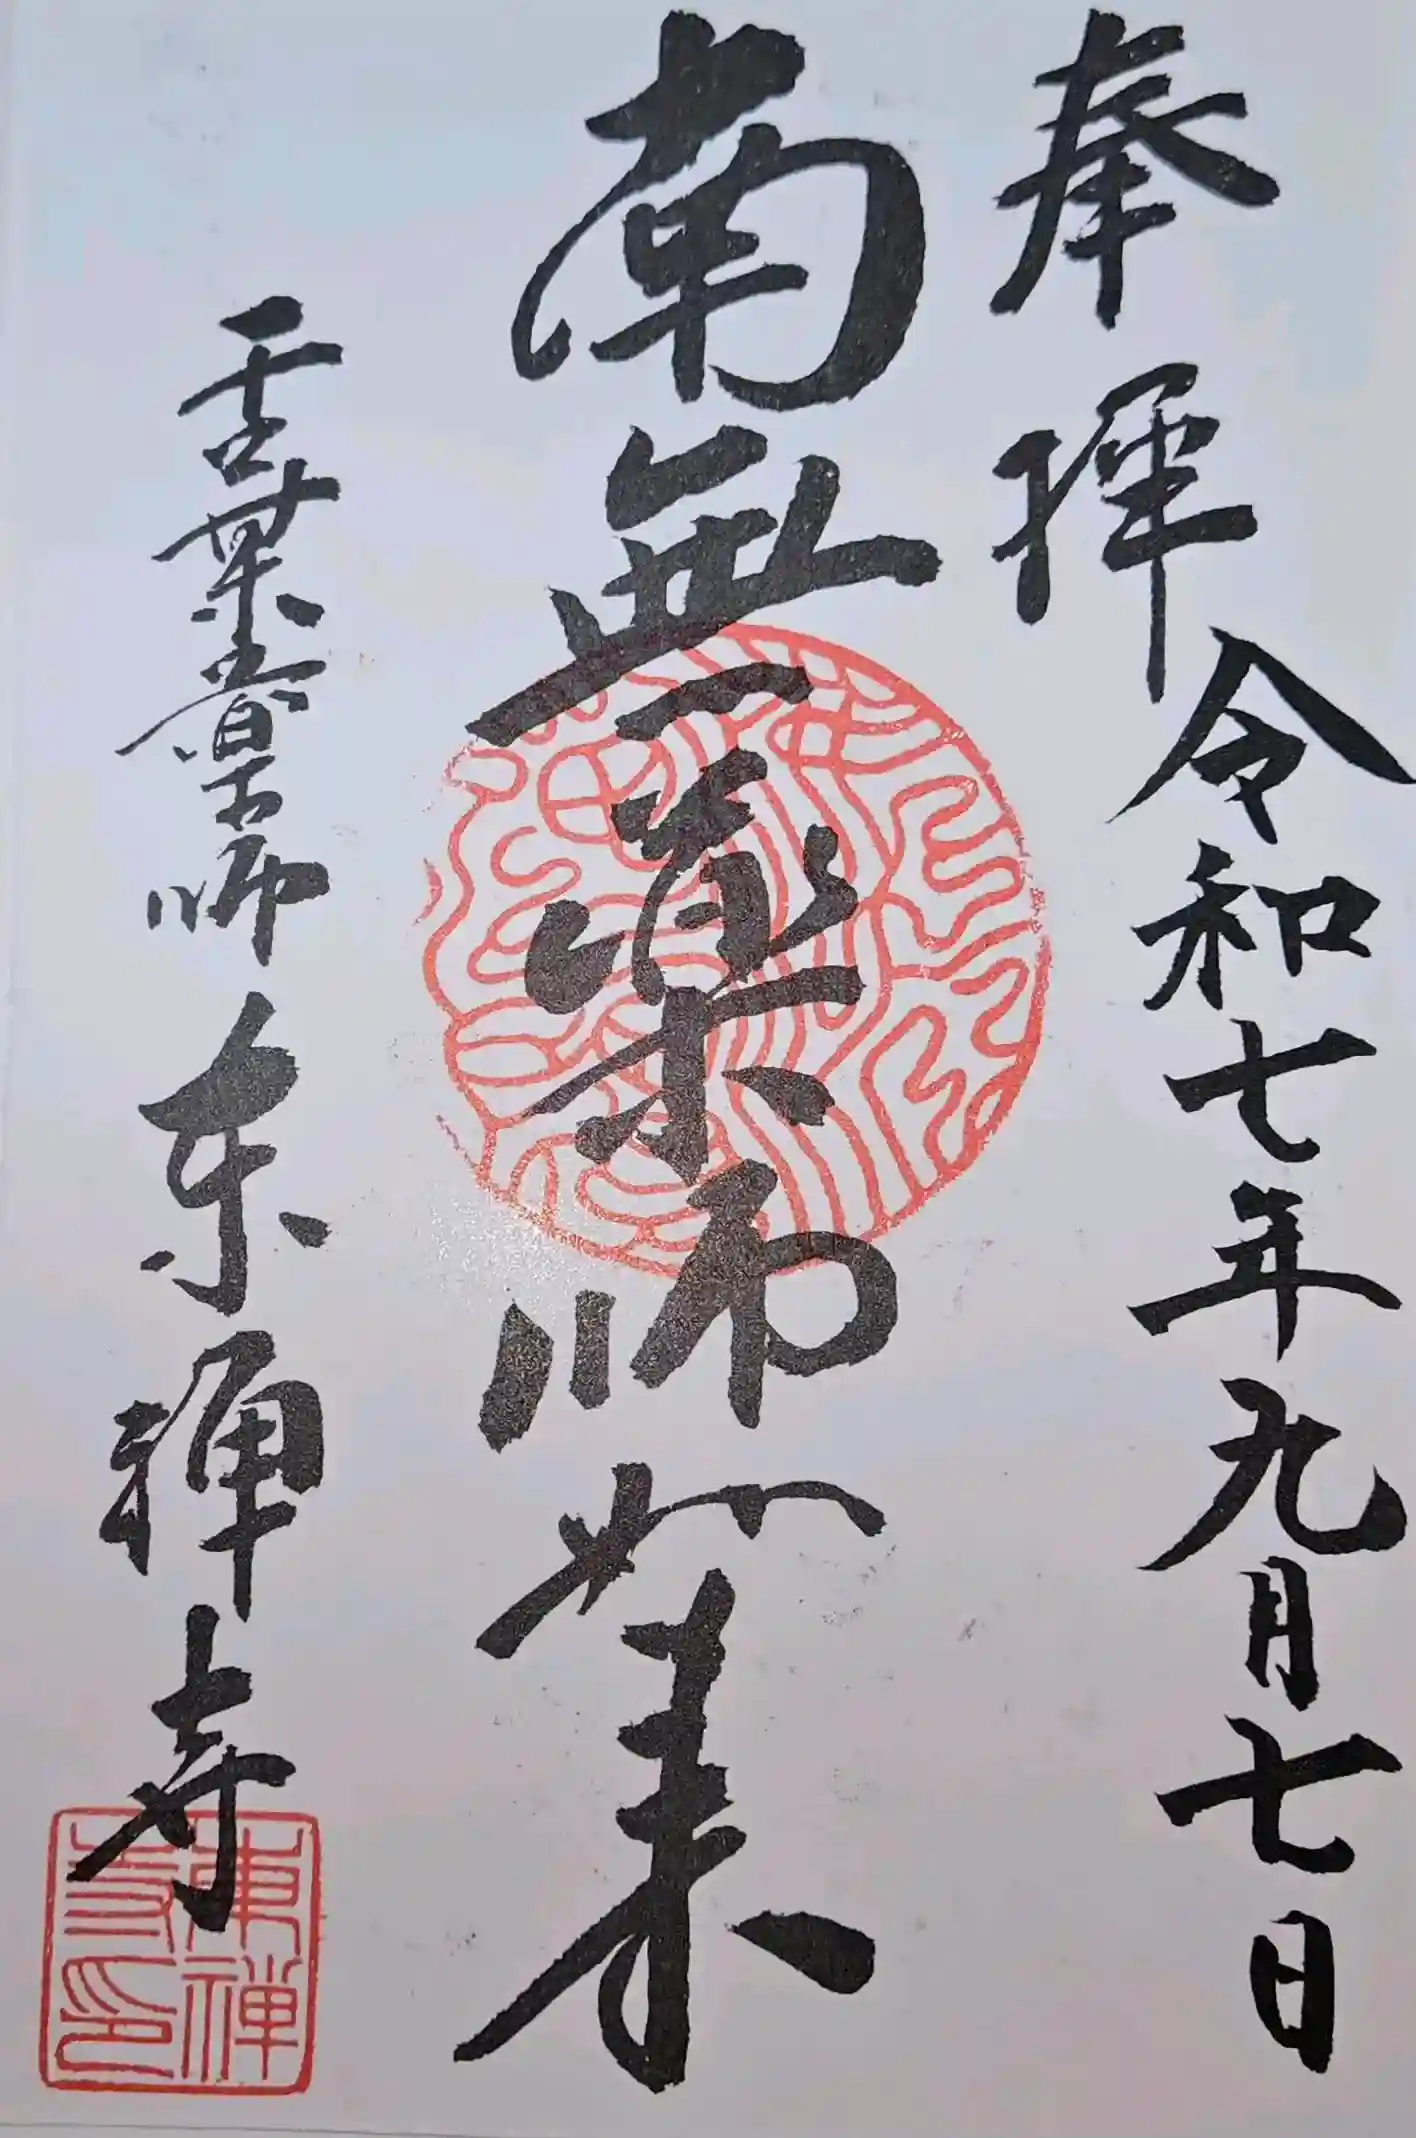 奉拝 令和七年九月七日
南無薬師如来
言葉薬師 東禅寺
東禅寺印